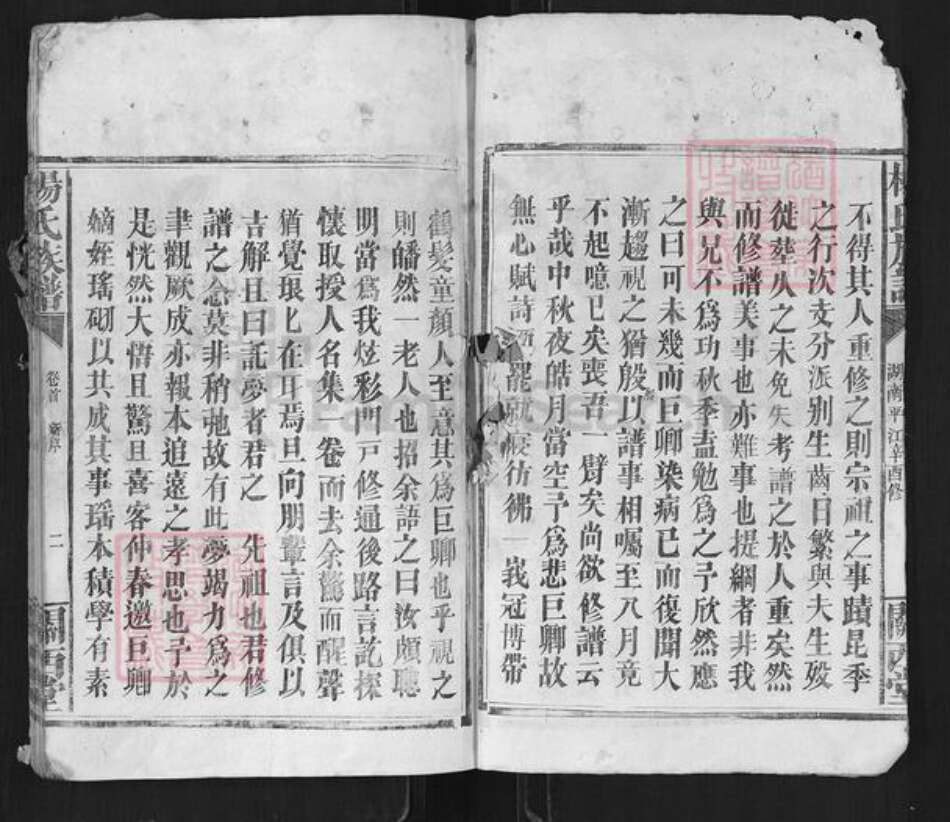 不得其人重修之則宗祖之事蹟昆季
之行次支分派别生齒日繁與夫生殁
徙塟久之未免失考譜之於人重矣然
而修譜美事也亦難事也提綱者非我
與兄不為功秋季盍勉為之予欣然應
之曰可未幾而巨卿染病已而復聞大
漸趨視之猶殷殷以譜事相囑至八月竟
不起噫已矣喪吾一臂矣尚欲修譜云
乎哉中秋夜皓月當空予為悲巨卿故
無心賦詩 罷就寢彷彿一峩冠博帶
鶴髪童顏人至意其為巨卿也乎視之
則皤然一老人也招余語之曰汝頗聰
明當為我炫彩門戸修通後路言訖探
懷取授人名集一卷而去余驚而醒聲
猶覺琅匕在耳焉旦向朋輩言及俱以
吉解且曰託夢者君之 先祖也君修
譜之念莫非稍弛故有此夢竭力為之
聿觀厥成亦報本追遠之孝思也予於
是恍然大悟且驚且喜客仲春邀巨卿
嫡姪瑤砌以共成其事瑤本積學有素
楊氏族譜
湖南平江辛酉修
關西堂
楊氏族譜
卷首 新序
二
關西堂